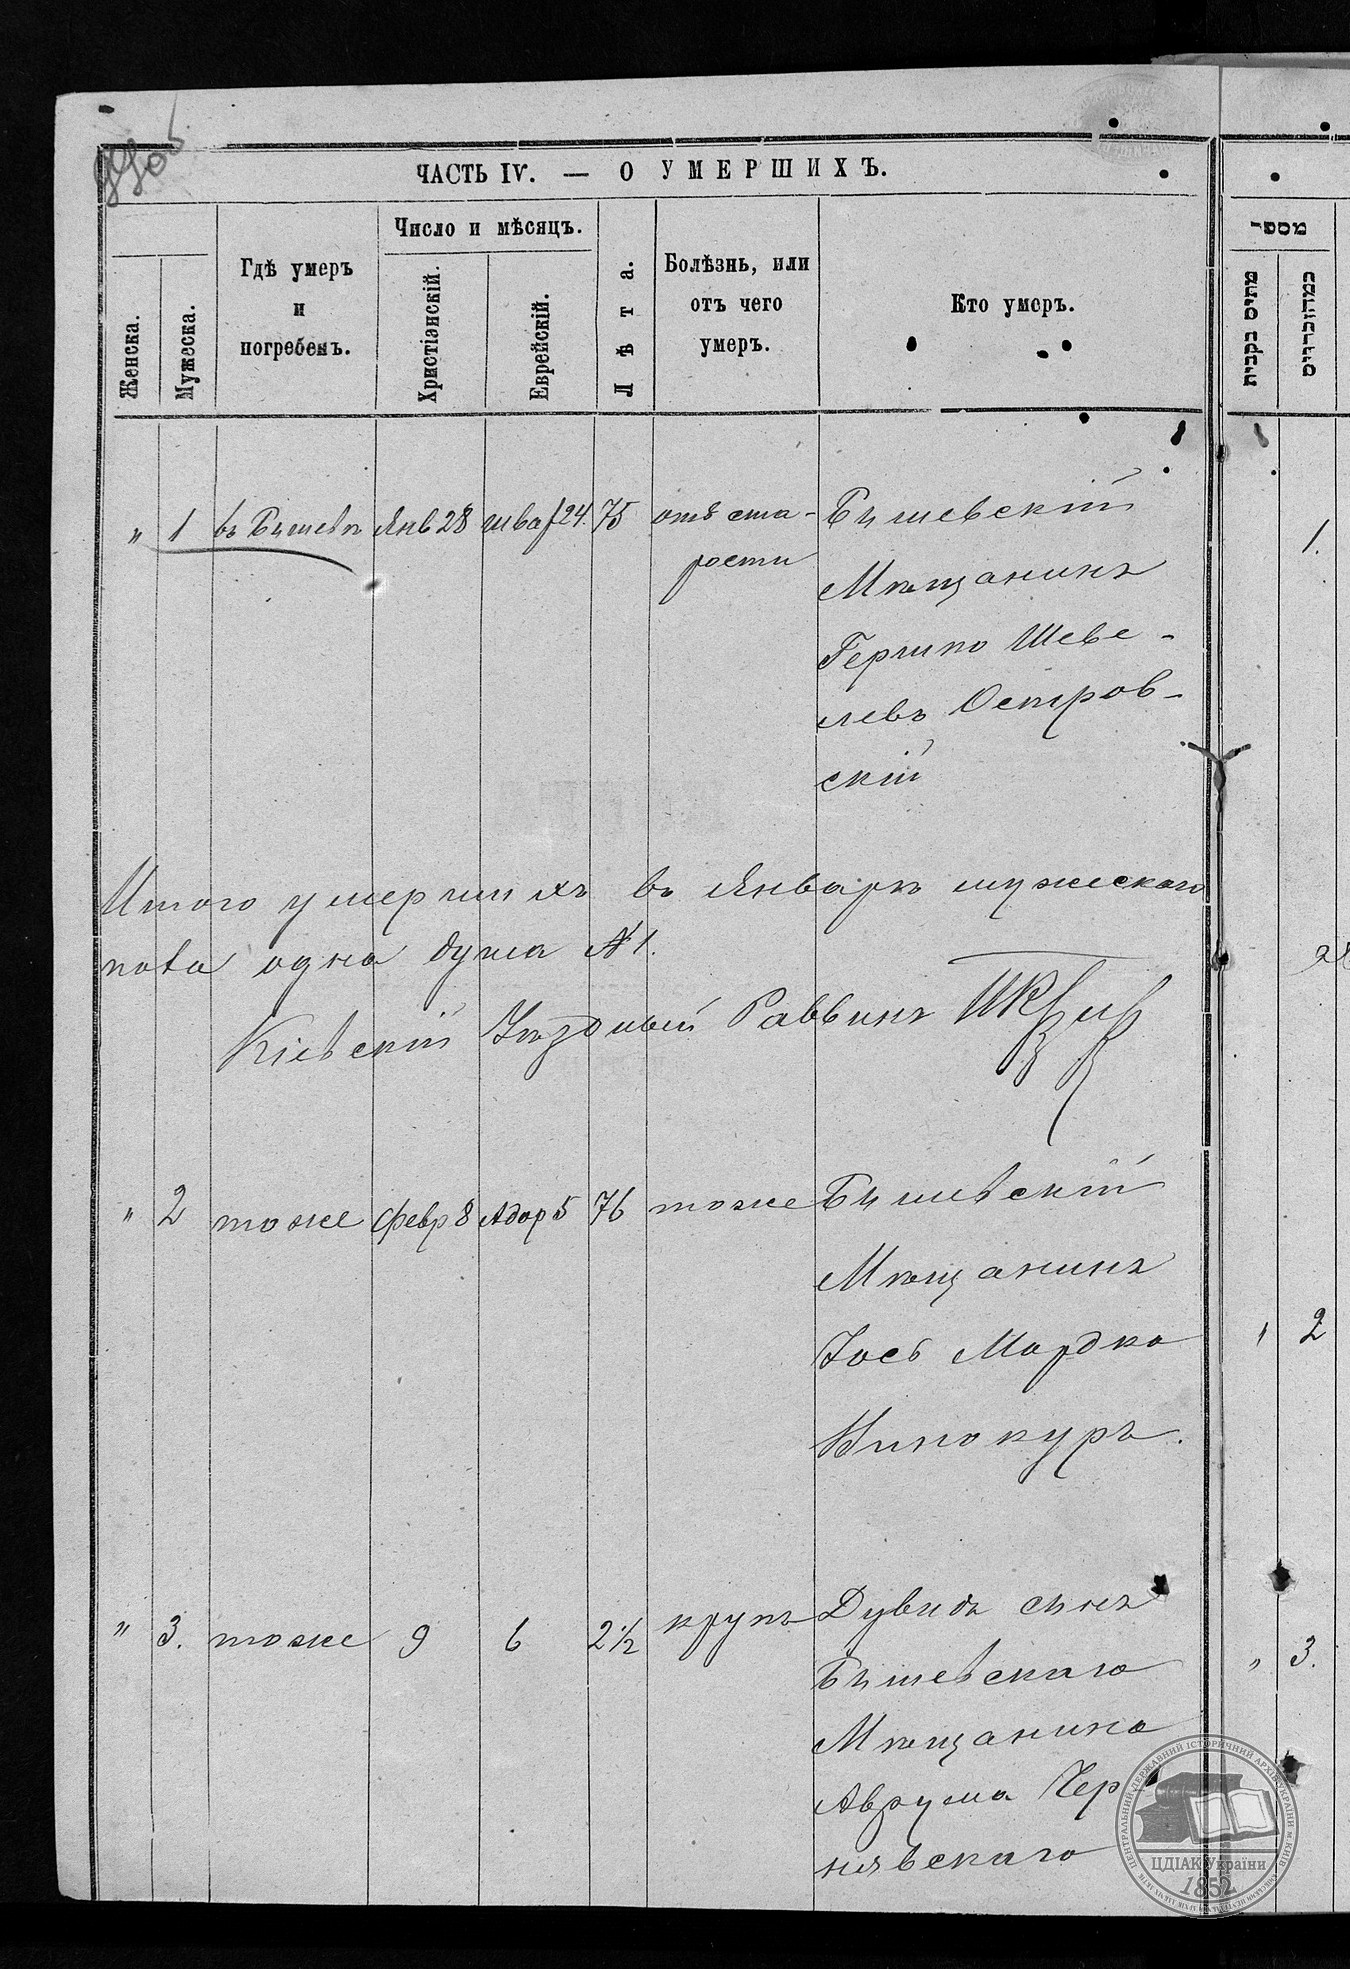 ЧАСТЬ IV. — О УМЕРШИХЪ.
Женска.
Мужеска.
Гдѣ умеръ
и
погребенъ.
Число и мѣсяцъ.
Христіянскій.
Еврейскій.
Лѣта.
Болѣзнь, или
отъ чего
умеръ.
Кто умеръ.
מספר
מתים בקבית
כמהזכרים
" 1 въ Бышевѣ Янв 28 шват 24. 75 отъ ста- Бышевскій
рости Мѣщанинъ
Гершко Шеве-
левъ Остров-
скій
1.
Итого умершихъ въ Январѣ мужескаго
пола одна душа № 1.
Кіевскій Уѣздный Раввинъ
" 2 тоже февр 8 Адор 5 76 тоже Бышевскій
Мѣщанинъ
Іось Мордко
Винокуръ.
" 2
" 3. тоже 9 6 2 1/2 крупъ Дувидъ сынъ
Бышевскаго
Мѣщанина
Аврума Чер-
нявскаго
" 3.
ЦЕНТРАЛЬНИЙ ДЕРЖАВНИЙ ІСТОРИЧНИЙ АРХІВ УКРАЇНИ м. КИЇВ
ЦДІАК України
1852